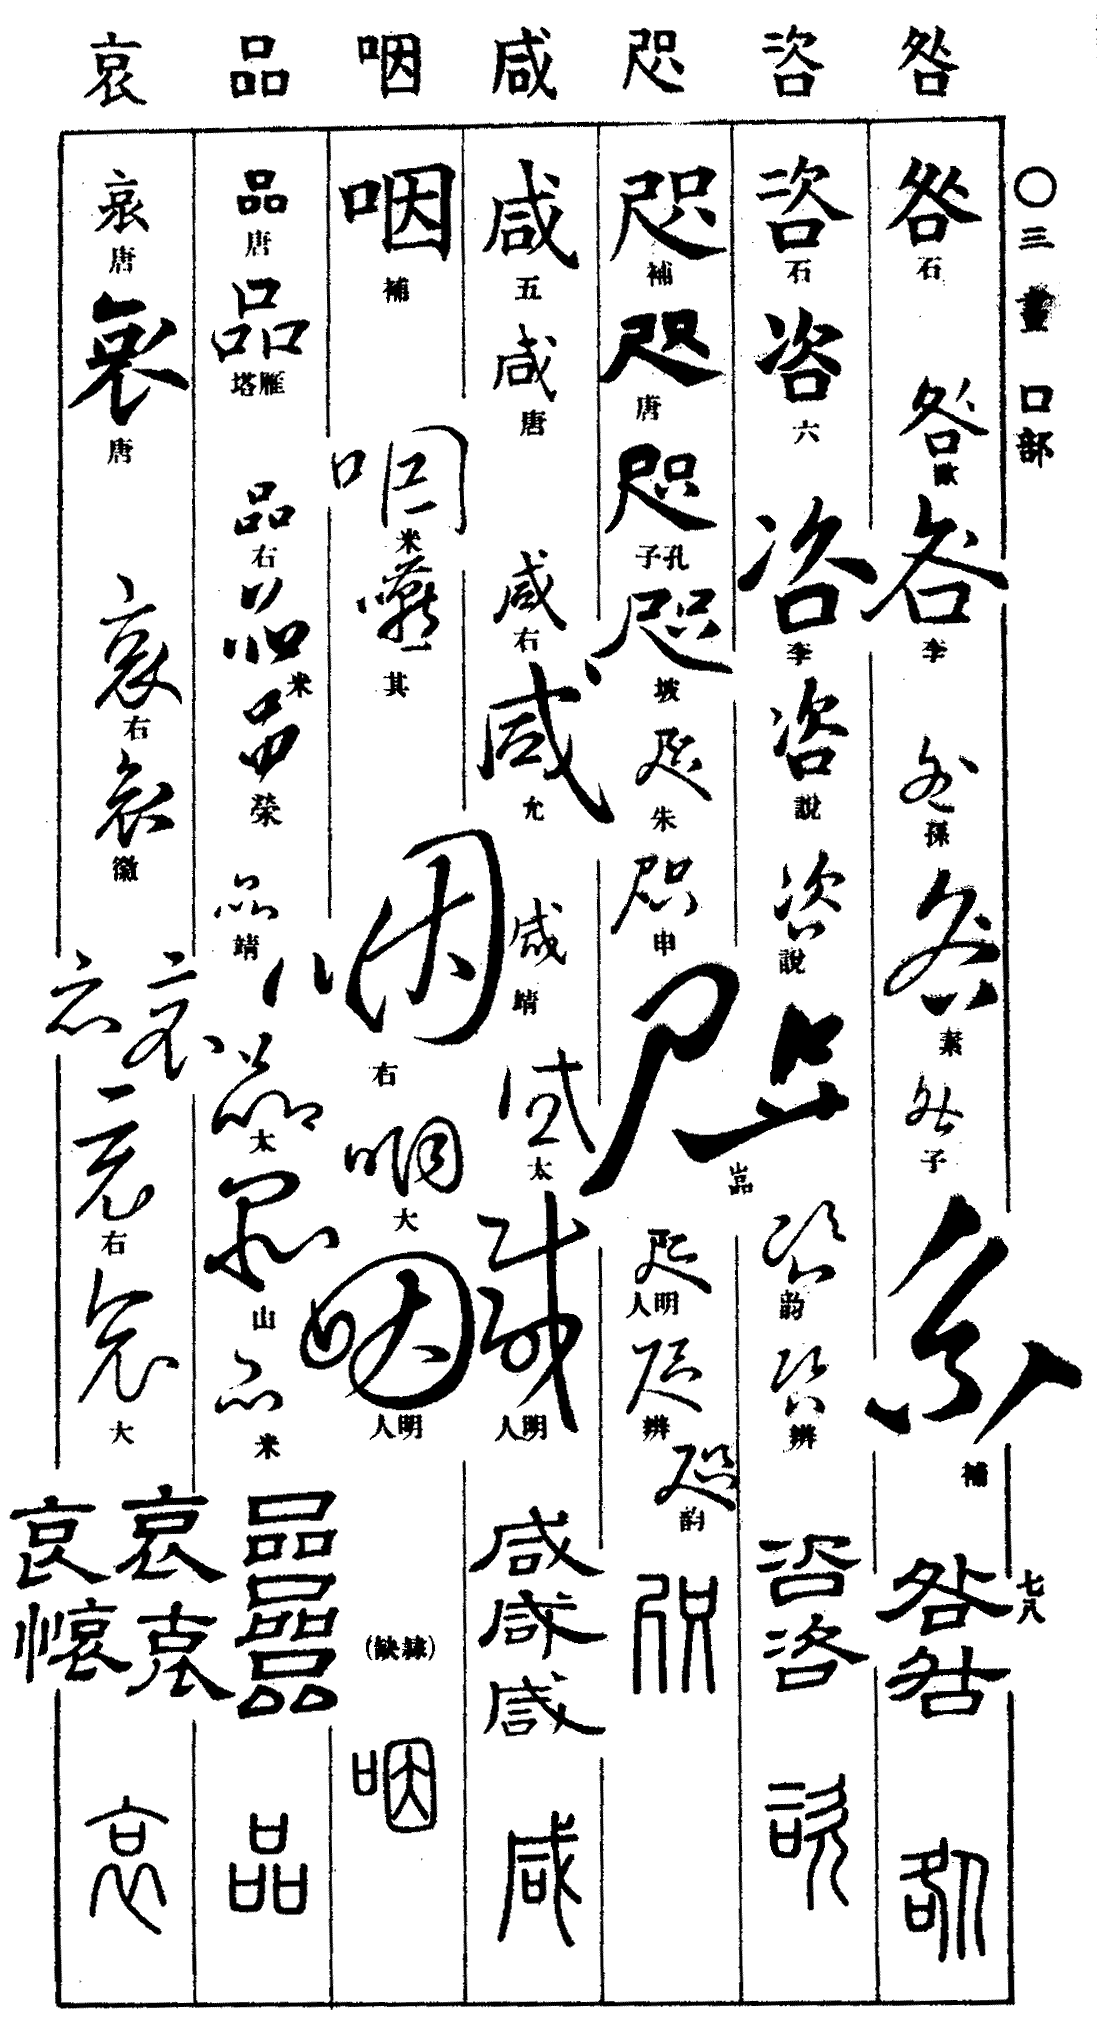 〇三畫 口部
七八
咎 咨 咫 咸 咽 品 哀
咎 石
咎 歐
咎 李
咎 孫
咎 素
咎 子
咎 補
咎
咎
咎
咨 石
咨 六
咨 李
咨 說
咨 說
咨
咨 韵
咨 辨
咨
咨
咨
咫 補
咫 唐
咫 孔子
咫 坡
咫 朱
咫 申
咫
咫 明人
咫 辨
咫 韵
咫
咸 五
咸 唐
咸 右
咸 允
咸 靖
咸 太
咸 明人
咸
咸
咸
咸
咽 補
咽 米
嚥 其
咽 右
咽 大
咽 明人
(隸缺)
咽
品 唐
品 雁塔
品 右
品 米
品 榮
品 靖
品
品 太
品 山
品 米
品
品
品
品
哀 唐
哀 唐
哀 右
哀 徽
哀
哀
哀 右
哀 大
哀
哀
哀
哀